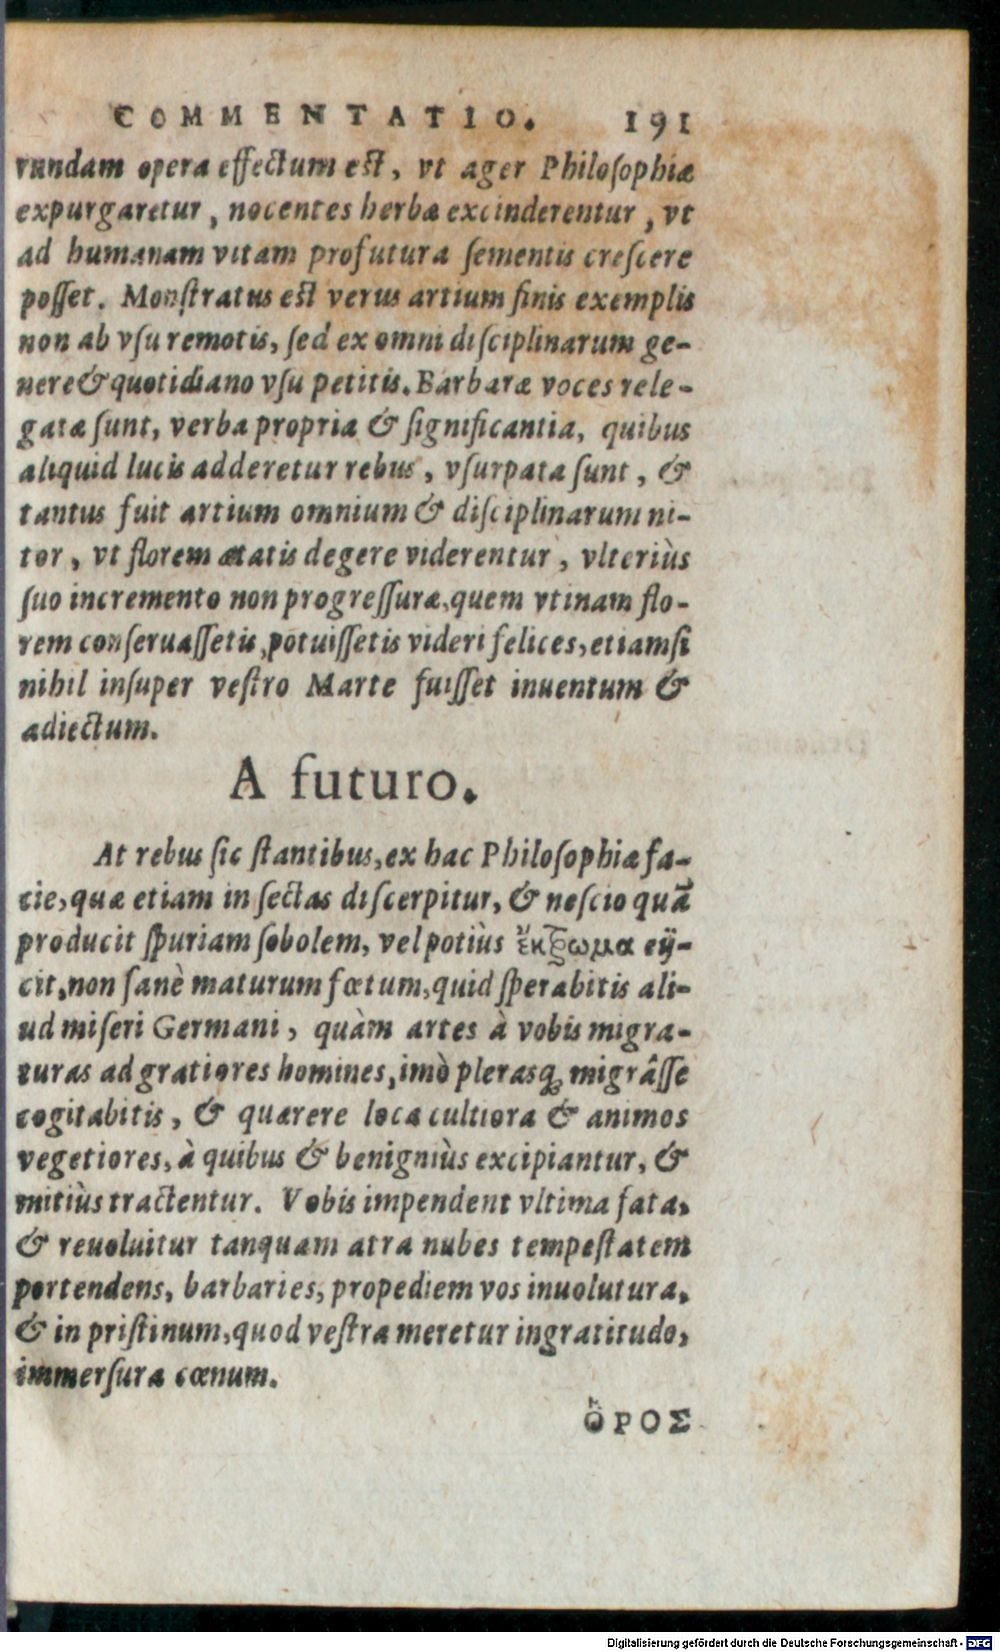 COMMENTATIO. 191
rundam opera effectum est, vt ager Philosophiæ
expurgaretur, nocentes herbæ excinderentur, vt
ad humanam vitam profutura sementis crescere
posset. Monstratus est verus artium finis exemplis
non ab vsu remotis, sed ex omni disciplinarum ge-
nere & quotidiano vsu petitis. Barbaræ voces rele-
gatæ sunt, verba propria & significantia, quibus
aliquid lucis adderetur rebus, vsurpata sunt, &
tantus fuit artium omnium & disciplinarum ni-
tor, vt florem ætatis degere viderentur, vlteriùs
suo incremento non progressuræ, quem vtinam flo-
rem conseruassetis, potuissetis videri felices, etiamsi
nihil insuper vestro Marte fuisset inuentum &
adiectum.
A futuro.
At rebus sic stantibus, ex hac Philosophiæ fa-
cie, quæ etiam in sectas discerpitur, & nescio quã
producit spuriam sobolem, vel potiùs ἔκτρωμα eij-
cit, non sanè maturum fœtum, quid sperabitis ali-
ud miseri Germani, quàm artes à vobis migra-
turas ad gratiores homines, imò plerasq; migrâsse
cogitabitis, & quærere loca cultiora & animos
vegetiores, à quibus & benigniùs excipiantur, &
mitiùs tractentur. Vobis impendent vltima fata,
& reuoluitur tanquam atra nubes tempestatem
portendens, barbaries, propediem vos inuolutura,
& in pristinum, quod vestra meretur ingratitudo,
immersura cœnum.
ὍΡΟΣ
Digitalisierung gefördert durch die Deutsche Forschungsgemeinschaft - DFG